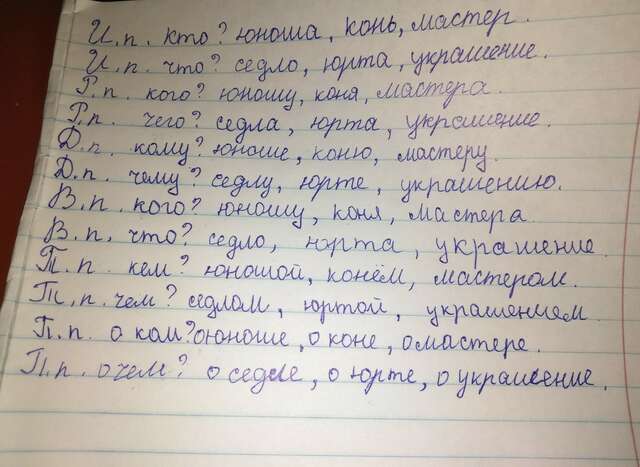 И.п. кто? юноша, конь, мастер.
И.п. что? седло, юрта, украшение.
Р.п. кого? юношу, коня, мастера.
Р.п. чего? седла, юрта, украшение.
Д.п. кому? юноше, коню, мастеру.
Д.п. чему? седлу, юрте, украшению.
В.п. кого? юношу, коня, мастера
В.п. что? седло, юрта, украшение.
Т.п. кем? юношой, конём, мастером.
Т.п. чем? седлом, юртой, украшением
П.п. о ком? о юноше, о коне, о мастере.
П.п. о чем? о седле, о юрте, о украшение.